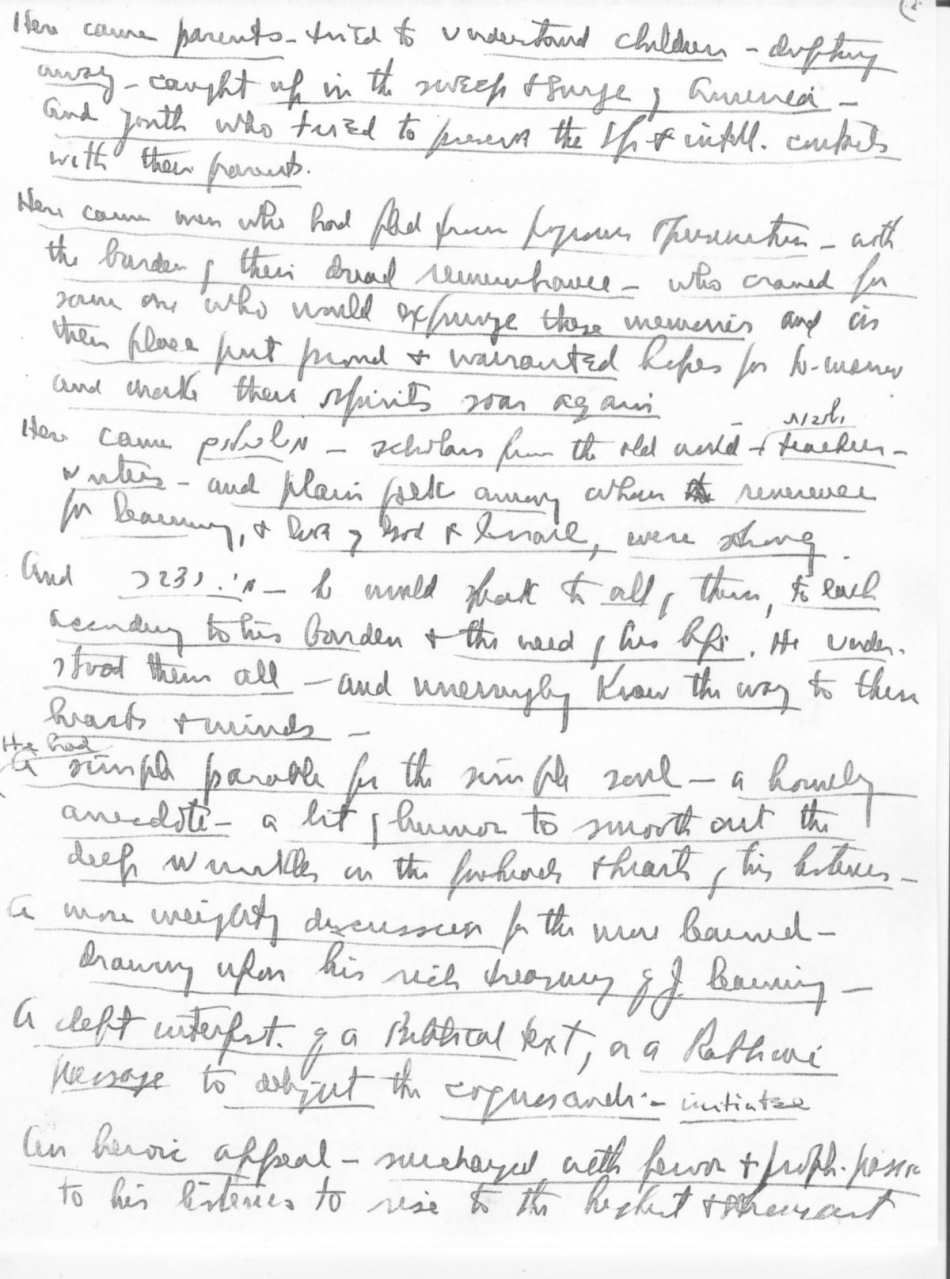 Here came parents - tried to understand children - drifting
away - caught up in the sweep & surge of America -
and youth who tried to preserve the sp. & intell. contacts
with their parents.
Here came men who had fled from pogroms & persecution - with
the burden of their dread remembrance - who craved for
some one who would expunge those memories and in
their place put proud & warranted hopes for to-morrow
and make their spirits soar again
Here came - scholars from the old world - & teachers -
writers - and plain folk among whom reverence
for learning, & love of God & Israel, were strong.
And - he would speak to all of them, to each
according to his burden & the need of his life. He under-
stood them all - and unerringly knew the way to their
hearts & minds -
He had
a simple parable for the simple soul - a homely
anecdote - a bit of humor to smooth out the
deep wrinkles on the foreheads & hearts of his listeners -
A more weighty discussion for the more learned -
drawing upon his rich treasury of J. learning -
A deft interpret. of a Biblical text, or a Rabbinic
passage to delight the cognoscendi - initiated
An heroic appeal - surcharged with fervor & proph. passion
to his listeners to rise to the highest &